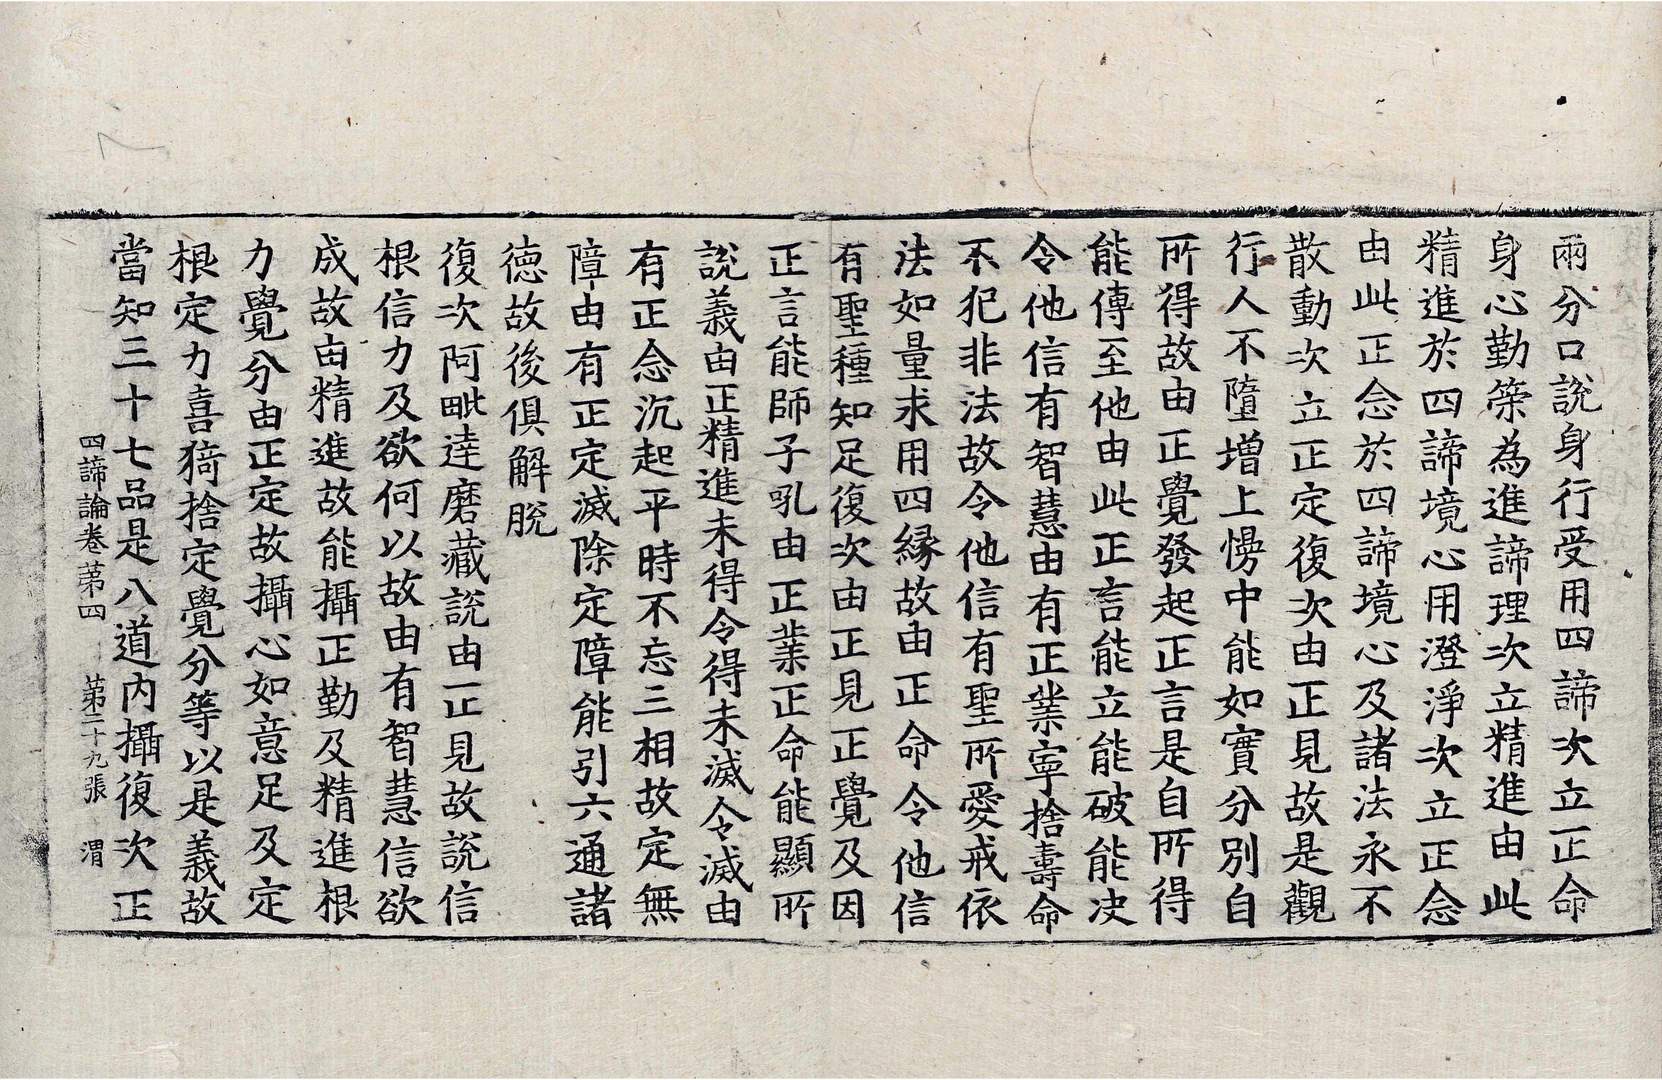 兩分口說身行受用四諦次立正命
身心勤䇿為進諦理次立精進由此
精進於四諦境心用澄淨次立正念
由此正念於四諦境心及諸法永不
散動次立正定復次由正見故是觀
行人不墮增上慢中能如實分別自
所得故由正覺發起正言是自所得
能傳至他由此正言能立能破能决
令他信有智慧由有正業寧捨壽命
不犯非法故令他信有聖所愛戒依
法如量求用四縁故由正命令他信
有聖種知足復次由正見正覺及因
正言能師子吼由正業正命能顯所
說義由正精進未得令得未滅令滅由
有正念沉起平時不忘三相故定無
障由有正定滅除定障能引六通諸
德故後俱解脫
復次阿毗達磨藏說由正見故說信
根信力及欲何以故由有智慧信欲
成故由精進故能攝正勤及精進根
力覺分由正定故攝心如意足及定
根定力喜猗捨定覺分等以是義故
當知三十七品是八道內攝復次正
四諦論卷苐四　苐二十九張　渭